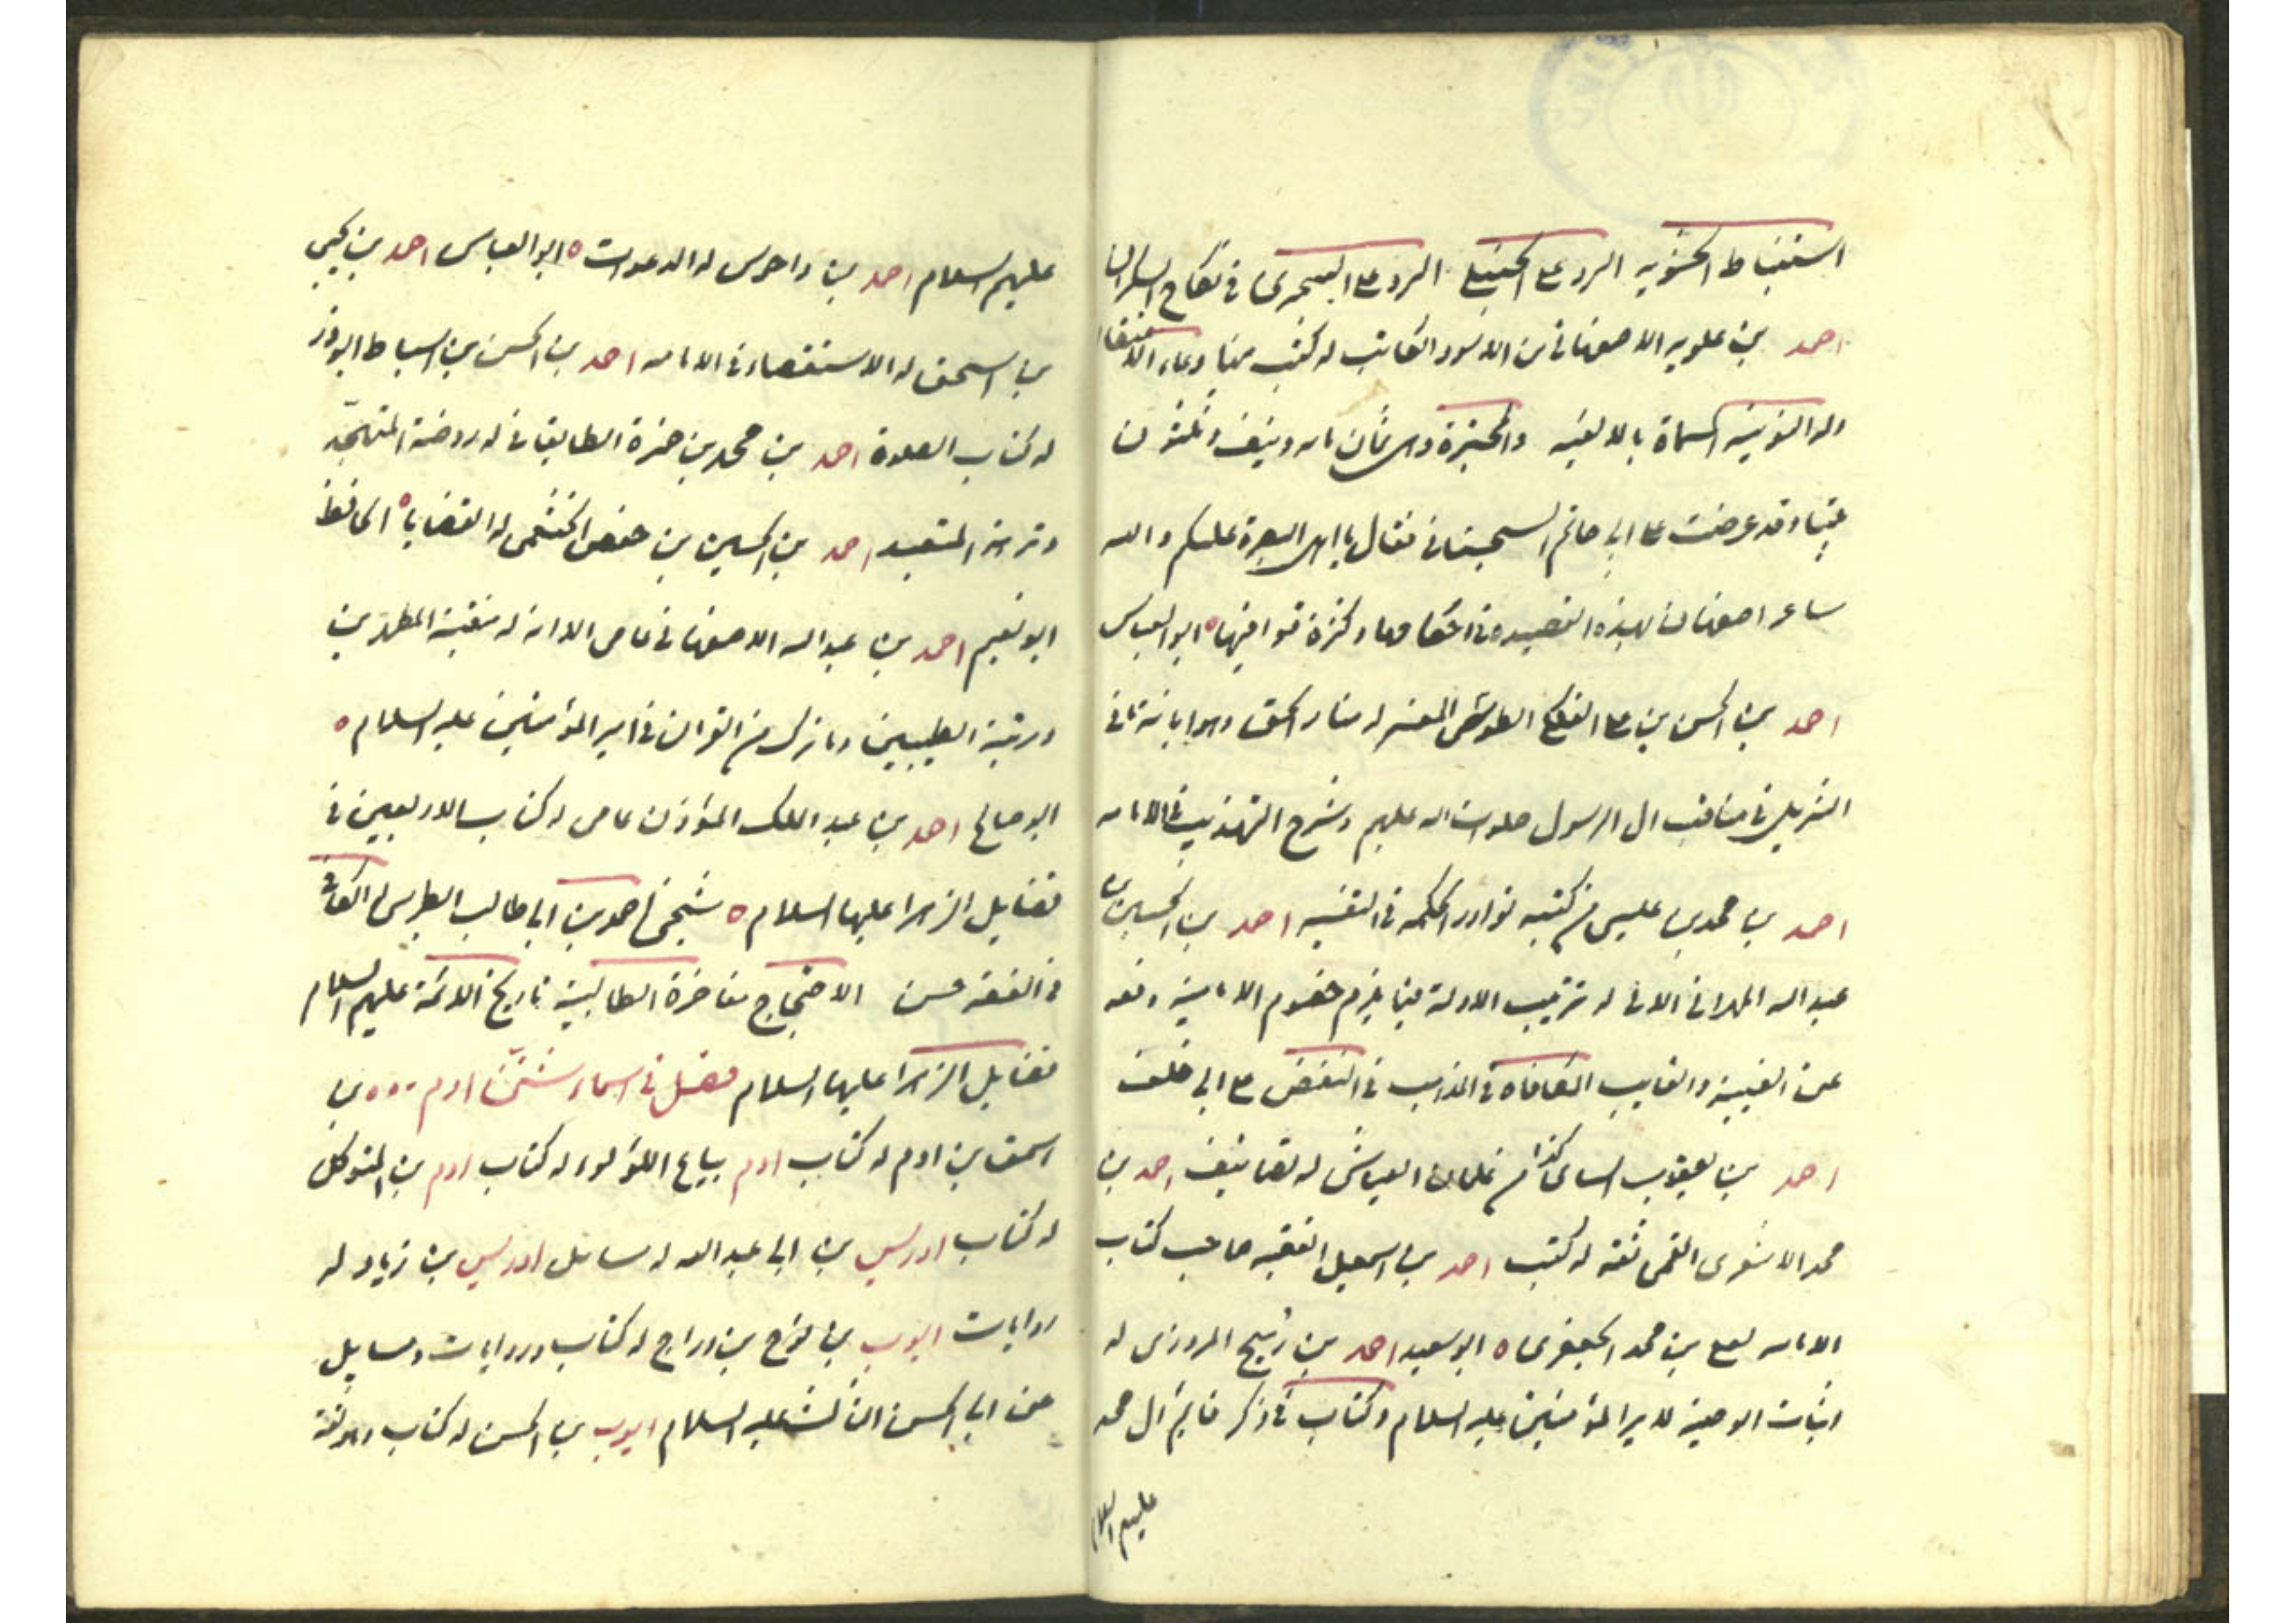 استنباط الحشويه الرد على الحنبلي الرد على السجزى فى نكاح السكران
احمد بن علويه الاصفهانى بن الاسود الكاتب له كتب منها دعاء الاعتقاد
وله النونية المسماة بالالفيه والمحبرة وهى ثمان مايه ونيف وثلثون
بيتا وقد عرضت على ابى حاتم السجستانى فقال يا اهل البصرة عليكم والله
شاعر اصفهان بهذه القصيده فى احكامها وكثرة قوافيها ه ابو العباس
احمد بن الحسن بن على الفلكى الطوسى المفسر له منار الحق وهو ابانه ما فى
التنزيل فى مناقب ال الرسول صلوات الله عليهم وشرح التهذيب فى الامامه
احمد بن محمد بن عليس من كتبه نوادر الحكمه فى التفسير احمد بن الحسين بن
عبد الله المهرانى الابى له ترتيب الادلة فيما يلزم خصوم الامامية دفعه
عن الغيبة والغايب المكافاه فى المذهب فى النقض على ابى خلف
احمد بن يعقوب السناى كذا من غلمان العياشى له تصانيف احمد بن
محمد الاشعرى القمى ثقه له كتب احمد بن اسمعيل الفقيه صاحب كتاب
الامامه لعلى بن محمد الجعفرى ه ابو سعيد احمد بن رميح المروزى له
اثبات الوصية لامير المؤمنين عليه السلام وكتاب فى ذكر قايم ال محمد
عليهم السلام
عليهم السلام احمد بن داحوس له الدعوات ه ابو العباس احمد بن يحيى
بن اسحق له الاستقصاء فى الامامه احمد بن الحسن بن اسباط ابوذر
له كتاب الصلوة احمد بن محمد بن حمزة الطايقانى له روضة المتهجد
ونزهة المتعبد احمد بن الحسين بن حفص الخثعمى له القضايا ه الحافظ
ابو نعيم احمد بن عبد الله الاصفهانى عامى الا انه له منقبة المطهرين
ورتبة الطيبين وما نزل من القران فى امير المؤمنين عليه السلام ه
ابو صالح احمد بن عبد الملك المؤذن عامى له كتاب الاربعين فى
فضايل الزهرا عليها السلام ه شيخى احمد بن ابى طالب الطبرسى له الكافى
فى الفقه حسن الاحتجاج مفاخرة الطالبية تاريخ الائمة عليهم السلام
فضايل الزهرا عليها السلام فصل فى اسماء شتى ادم بن
اسحق بن ادم له كتاب ادم بياع اللؤلؤ له كتاب ادم بن المتوكل
له كتاب ادريس بن ابى عبد الله له مسائل ادريس بن زياد له
روايات ايوب بن نوح بن دراج له كتاب وروايات ومسايل
عن ابى الحسن الثالث عليه السلام ايوب بن الحسن له كتاب وهو ثقة